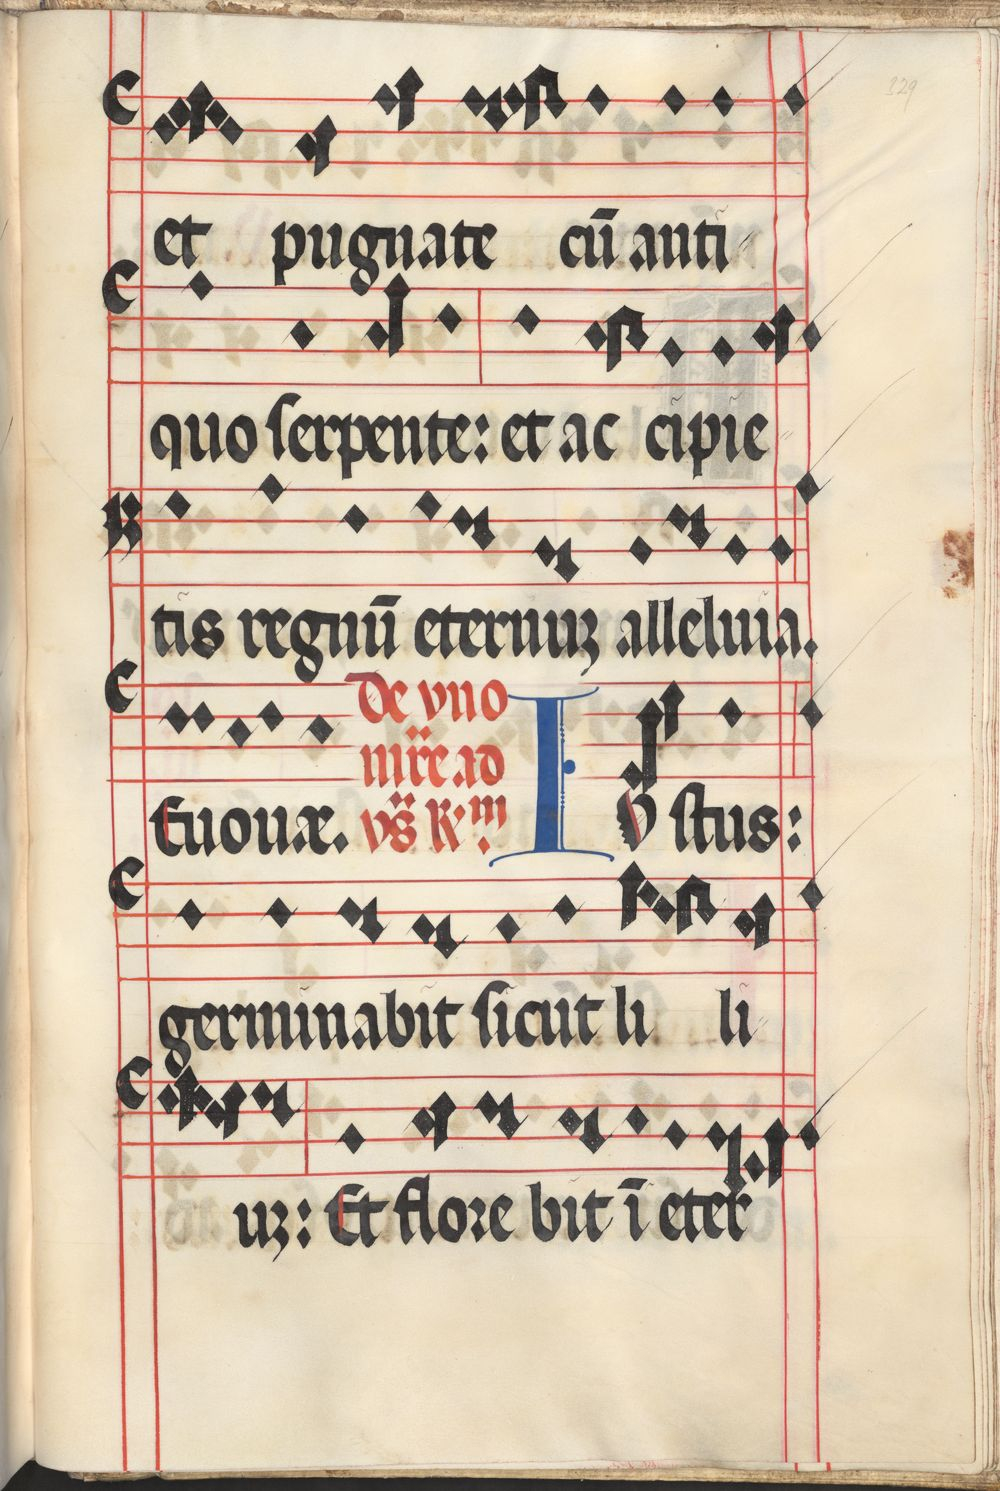 329
et pugnate cū anti
quo serpente: et ac cipie
tis regnū eternuȝ alleluia.
Euouæ. De vno
mr̄e ad
vs̄ R.m
I
V stus:
germinabit sicut li li
uȝ: Et flore bit ī eter